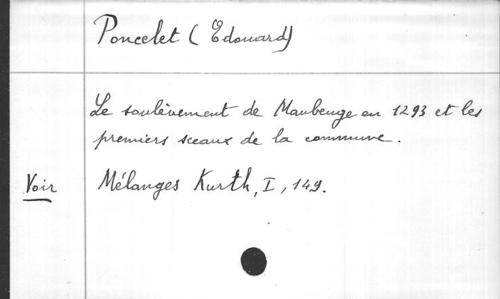 Poncelet (Edouard)
Le soulèvement de Maubeuge en 1293 et les
premiers sceaux de la commune.
Voir Mélanges Kurth, I, 149.